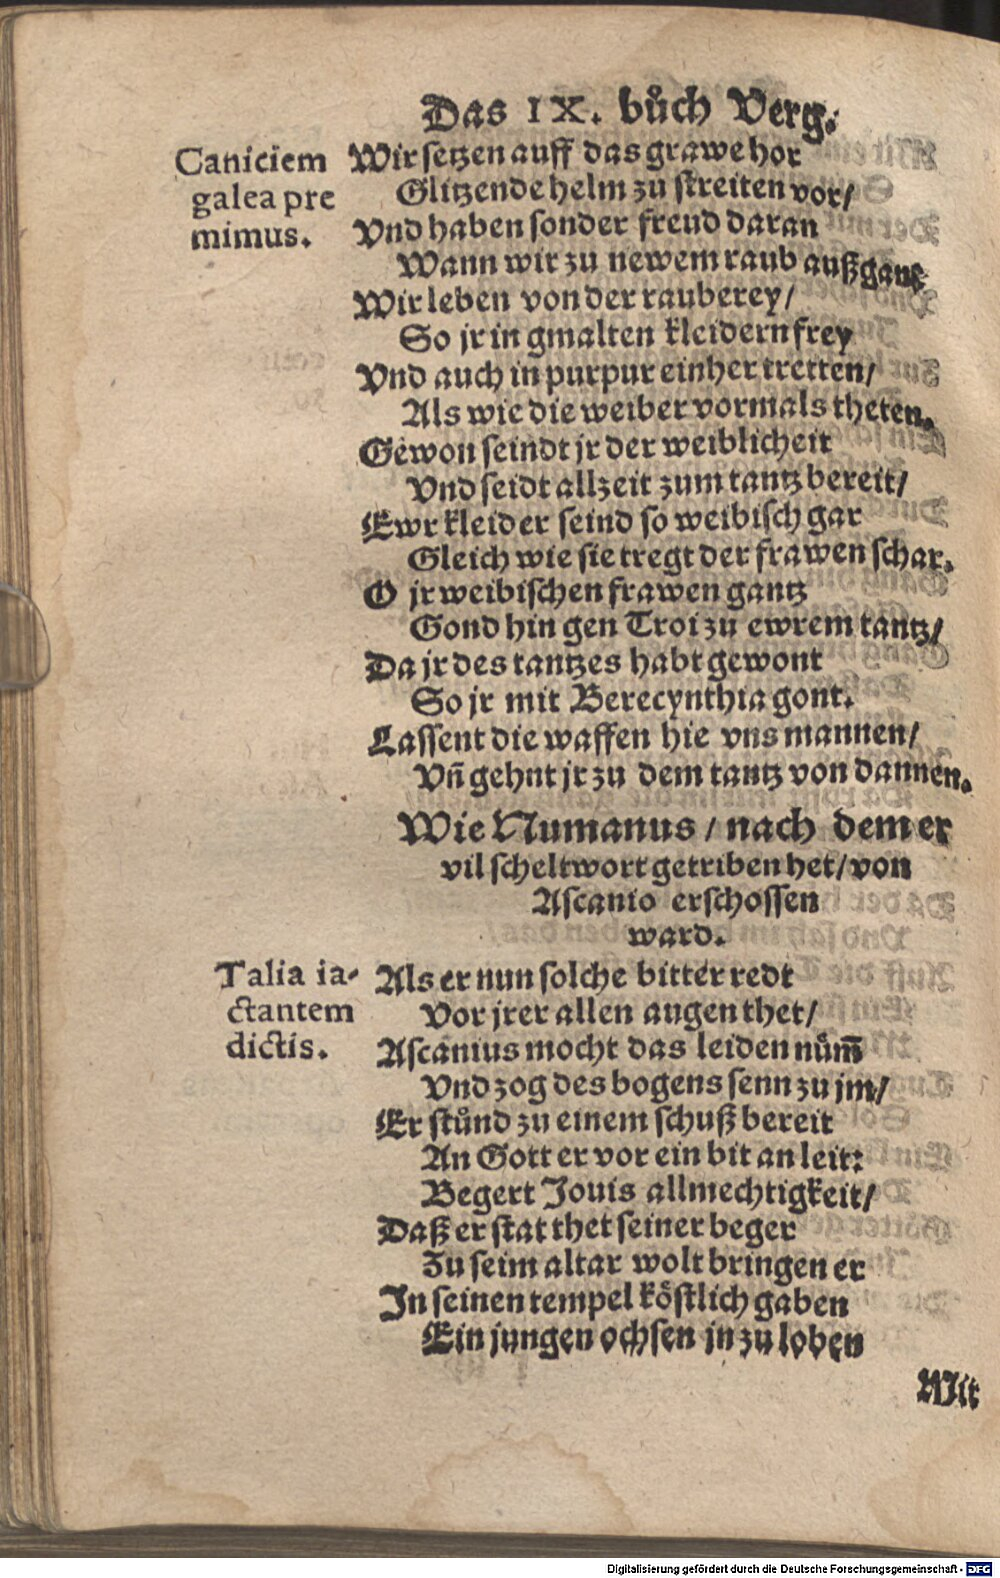 Das IX. bůch Verg.
Caniciem
galea pre
mimus.
Wir setzen auff das grawe hor
Glitzende helm zu streiten vor/
Vnd haben sonder freud daran
Wann wir zu newem raub außgane
Wir leben von der rauberey/
So jr in gmalten kleidern frey
Vnd auch in purpur einher tretten/
Als wie die weiber vormals theten.
Gewon seindt jr der weiblicheit
Vnd seidt allzeit zum tantz bereit/
Ewr kleider seind so weibisch gar
Gleich wie sie tregt der frawen schar.
O jr weibischen frawen gantz
Gond hin gen Troi zu ewrem tantz/
Da jr des tantzes habt gewont
So jr mit Berecynthia gont.
Lassent die waffen hie vns mannen/
Vñ gehnt jr zu dem tantz von dannen.
Wie Numanus / nach dem er
vil scheltwort getriben het/ von
Ascanio erschossen
ward.
Talia ia-
ctantem
dictis.
Als er nun solche bitter redt
Vor jrer allen augen thet/
Ascanius mocht das leiden nům̃
Vnd zog des bogens senn zu jm/
Er stůnd zu einem schuß bereit
An Gott er vor ein bit an leit:
Begert Jouis allmechtigkeit/
Daß er stat thet seiner beger
Zu seim altar wolt bringen er
In seinen tempel köstlich gaben
Ein jungen ochsen jn zu loben
Mit
Digitalisierung gefördert durch die Deutsche Forschungsgemeinschaft - DFG